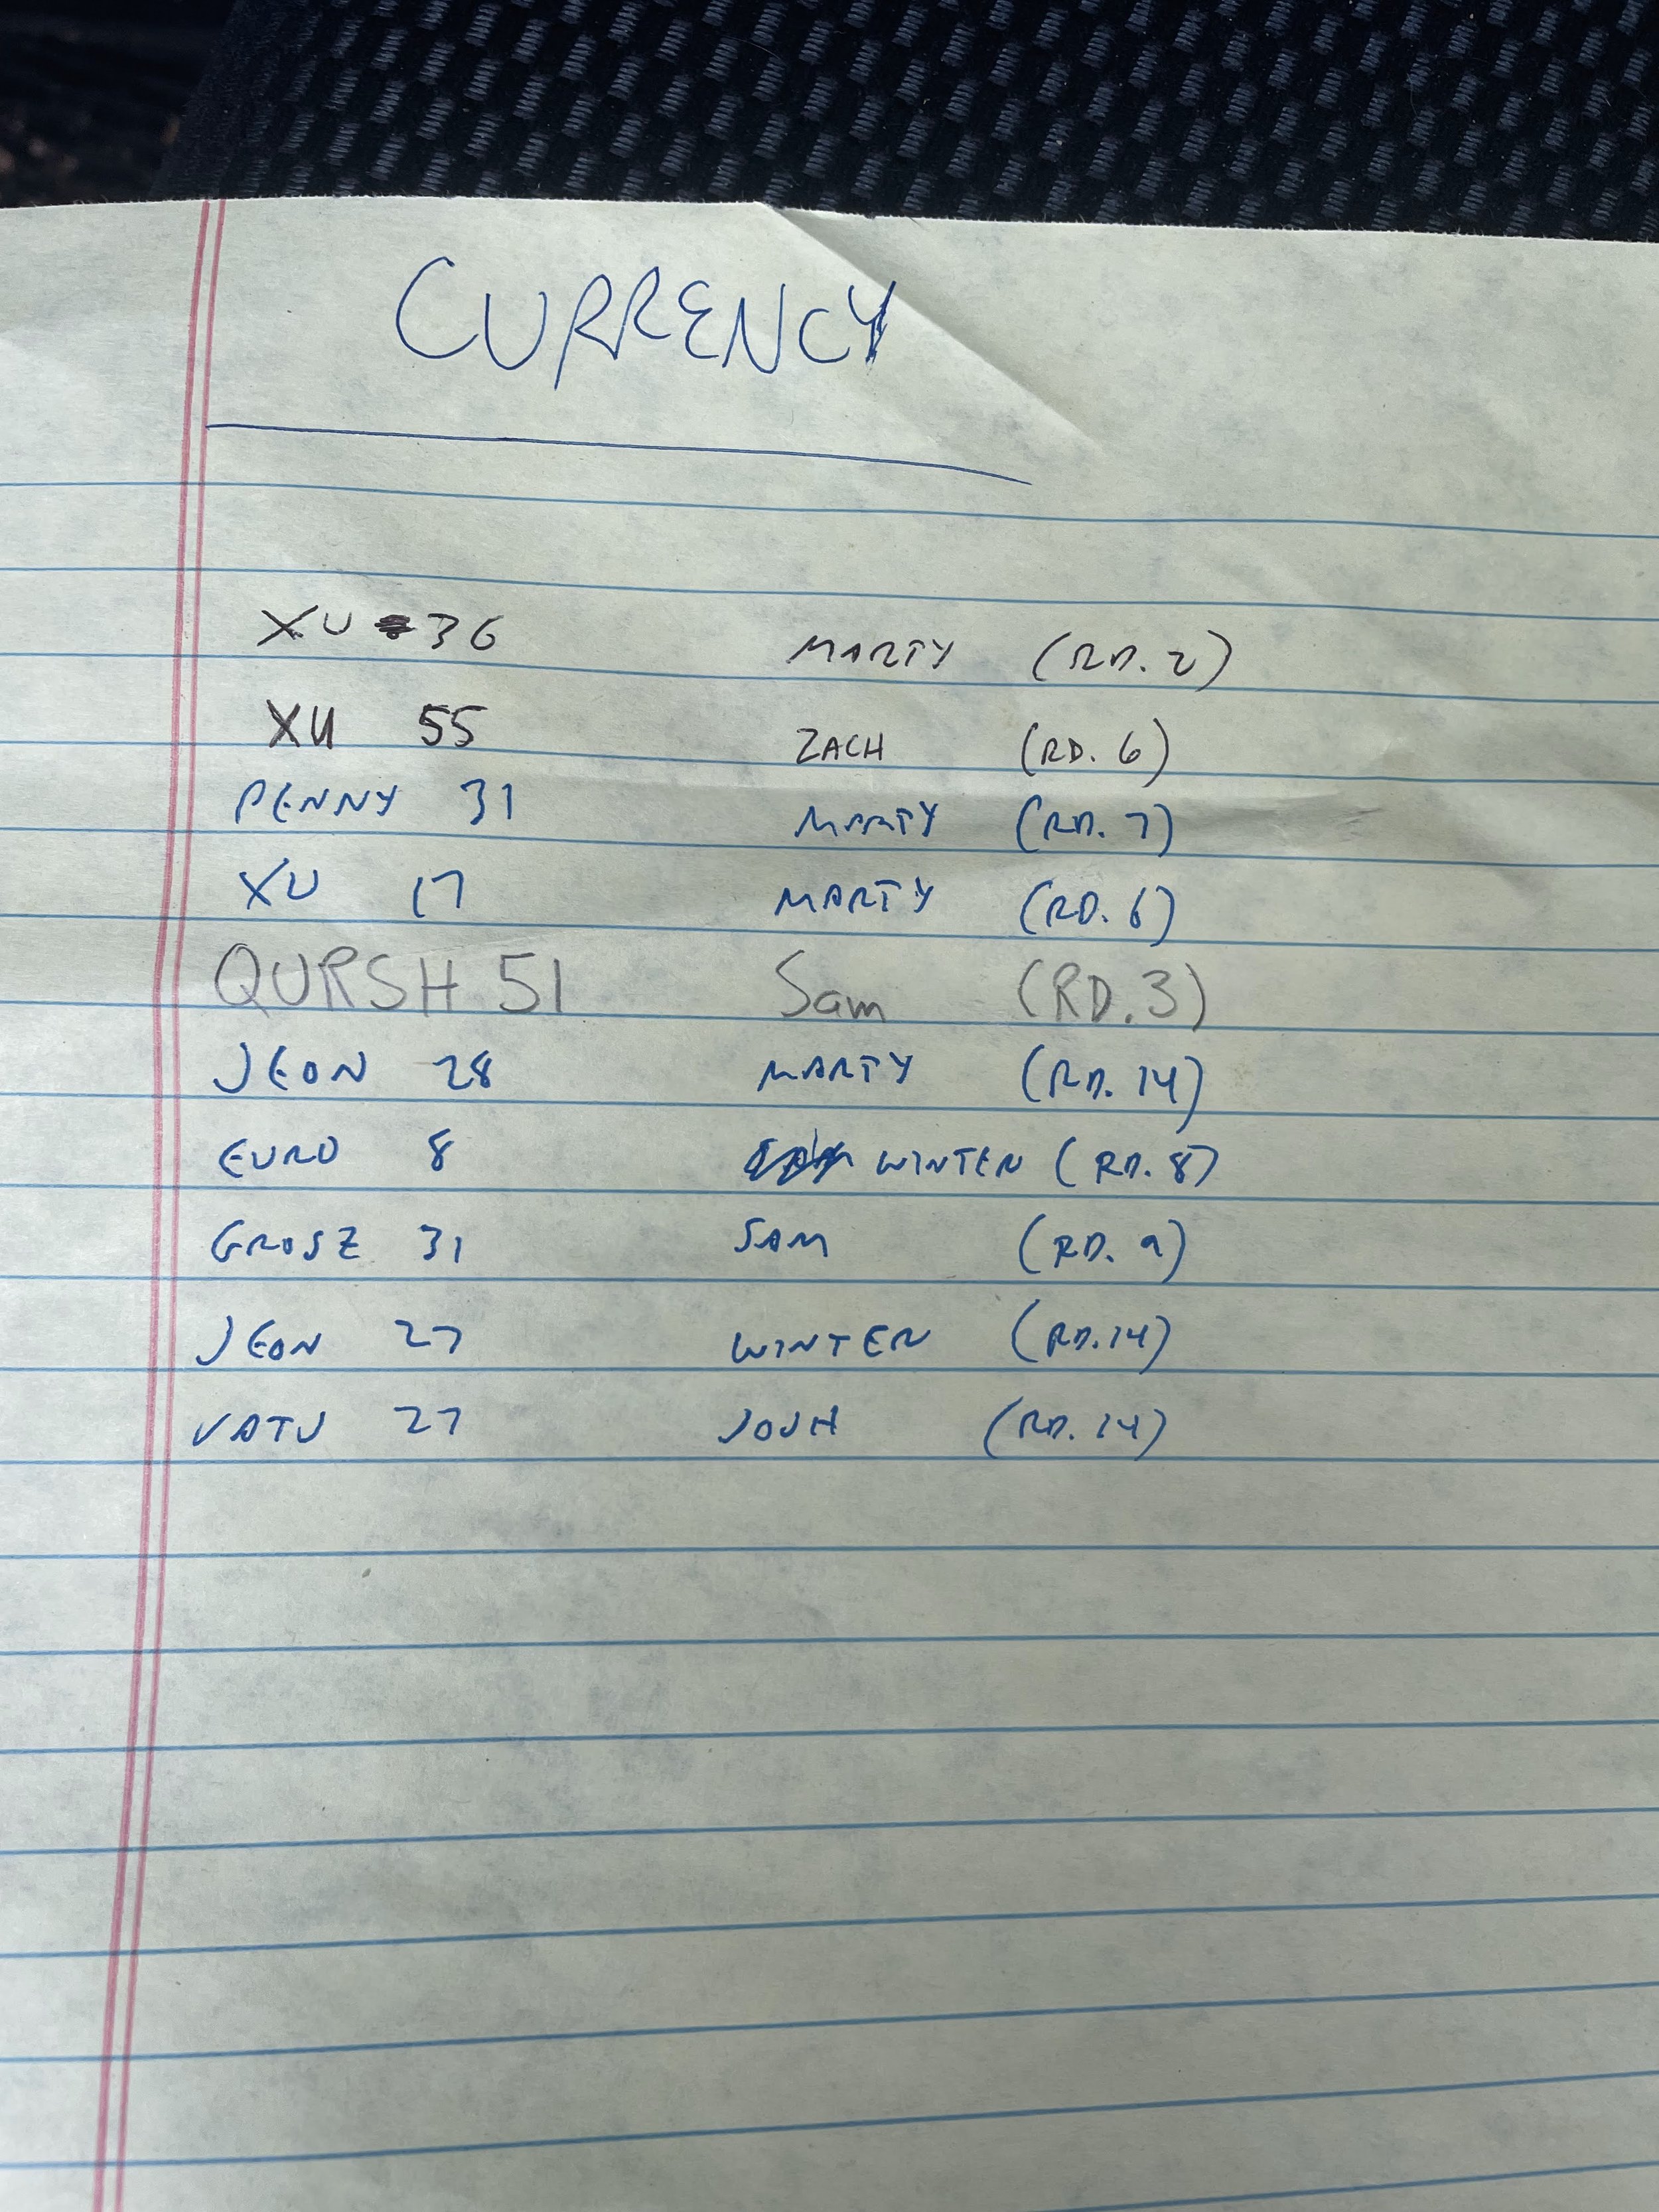 CURRENCY
XU 36 MARTY (RD. 2)
XU 55 ZACH (RD. 6)
PENNY 31 MARTY (RD. 7)
XU 17 MARTY (RD. 6)
QURSH 51 Sam (RD. 3)
JEON 28 MARTY (RD. 14)
EURO 8 WINTER (RD. 8)
GROSZ 31 SAM (RD. 9)
JEON 27 WINTER (RD. 14)
VATU 27 JOSH (RD. 14)